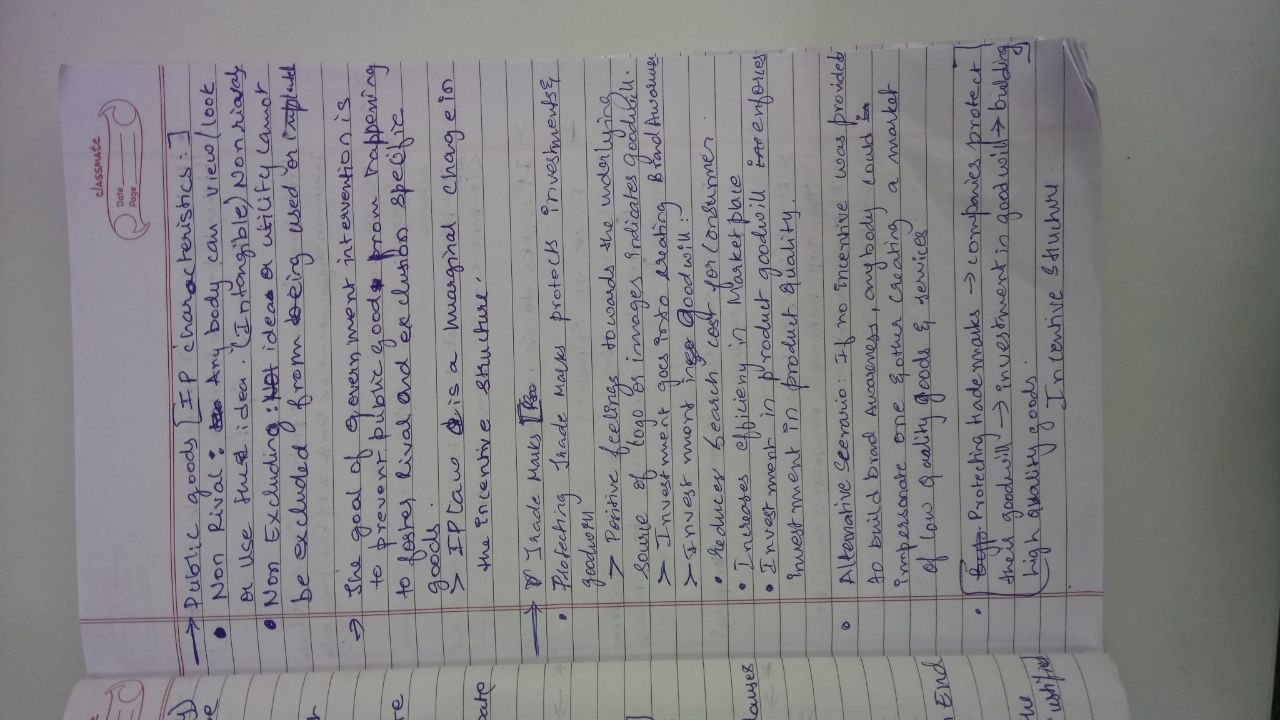 classmate
Date
Page
→ Public goods [IP characteristics:]
• Non Rival : Any body can view/look
or use this idea. (Intangible) Non rivalry
• Non Excluding : idea or utility cannot
be excluded from being used or
⇒ The goal of government intervention is
to prevent public goods from happening
to foster Rival and exclusion specific
goods.
> IP Law is a marginal change in
the incentive structure.
→ Trade Marks
• Protecting Trade Marks protects investments &
goodwill
> Positive feelings towards the underlying
source of logo or images indicates goodwill.
> Investment goes into creating Brand Awarness
> Invest ment into Goodwill:
• Reduces Search cost for Consumer.
• Increases efficieny in Market place
• Investment in product goodwill enforces
investment in product quality.
• Alternative Scenario: If no incentive was provided
to build brad Awareness, anybody could
impersonate one another creating a market
of low quality goods & services
• Protecting trade marks → companies protect
their goodwill → investment in goodwill → building
high quality goods.
Incentive Structure
lauses
End
the
ustified